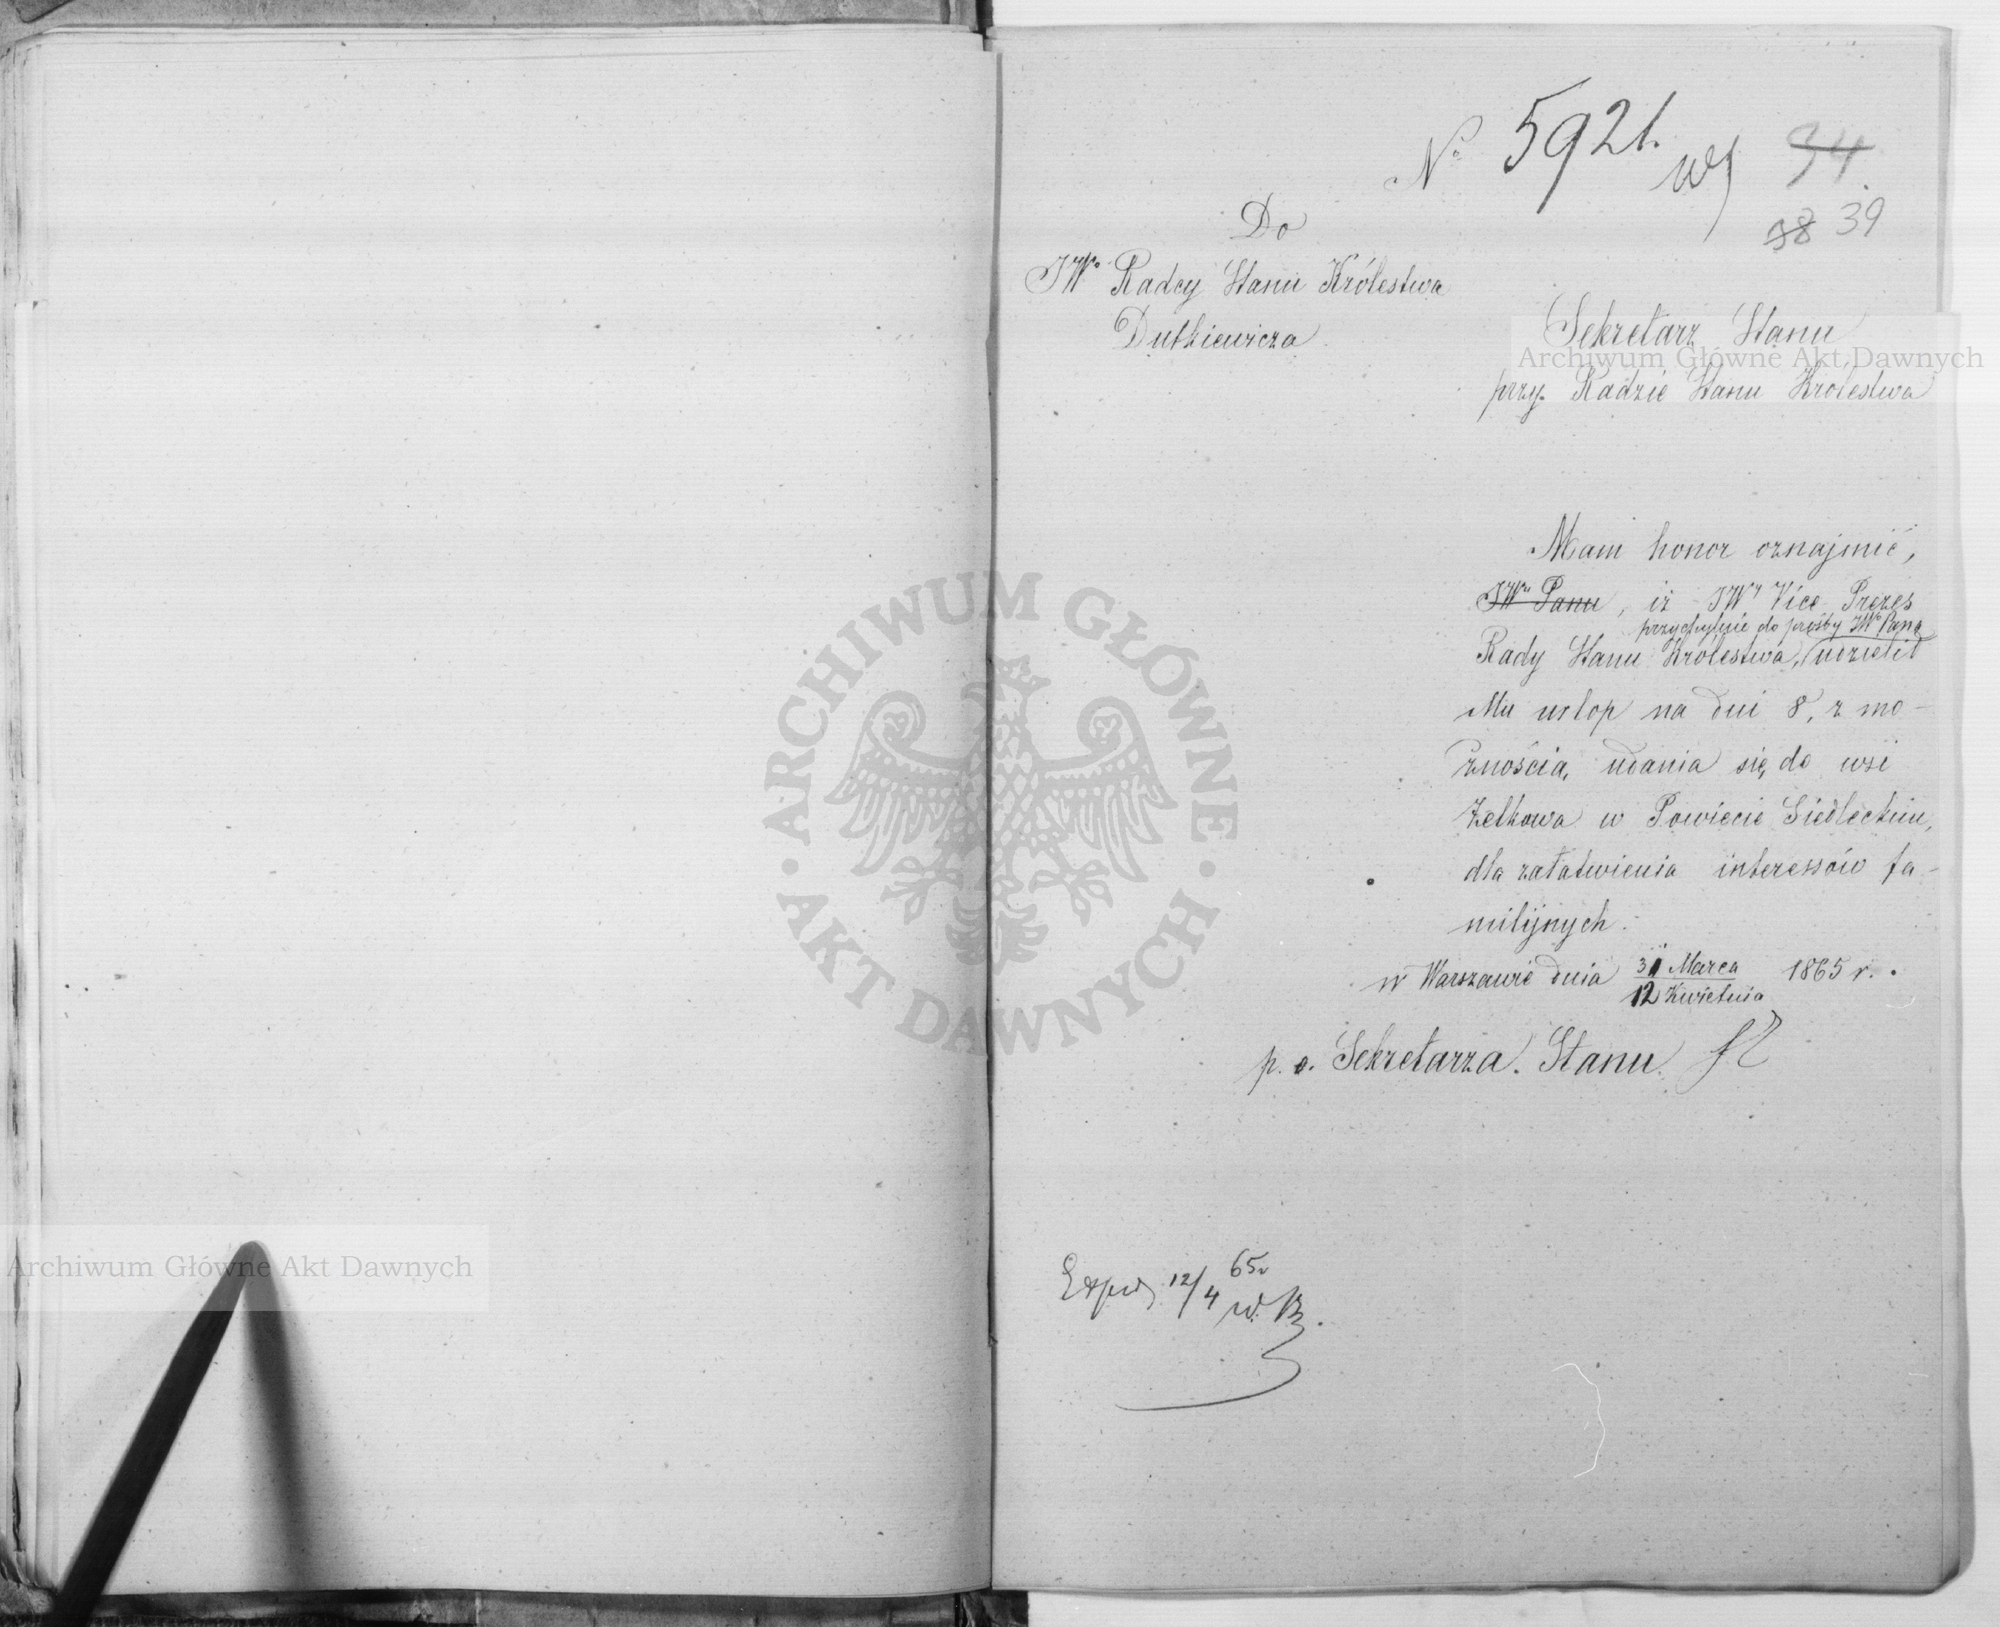 Nº 5921.
34
38 39
Do
JWº Radcy Stanu Królestwa
Dutkiewicza
Sekretarz Stanu
przy Radzie Stanu Królestwa
Mam honor oznajmić,
JWu Panu, iż JWy Vice Prezes
przychylnie do prośby JWº Pana
Rady Stanu Królestwa, udzielił
Mu urlop na dni 8, z mo-
żnością udania się do wsi
Żelkowa w Powiecie Siedleckim,
dla załatwienia interessów fa-
milijnych.
w Warszawie dnia 31 Marca 1865 r.
12 Kwietnia
p. o. Sekretarza Stanu
12/4 65r
Archiwum Główne Akt Dawnych
Archiwum Główne Akt Dawnych
ARCHIWUM GŁÓWNE · AKT DAWNYCH ·